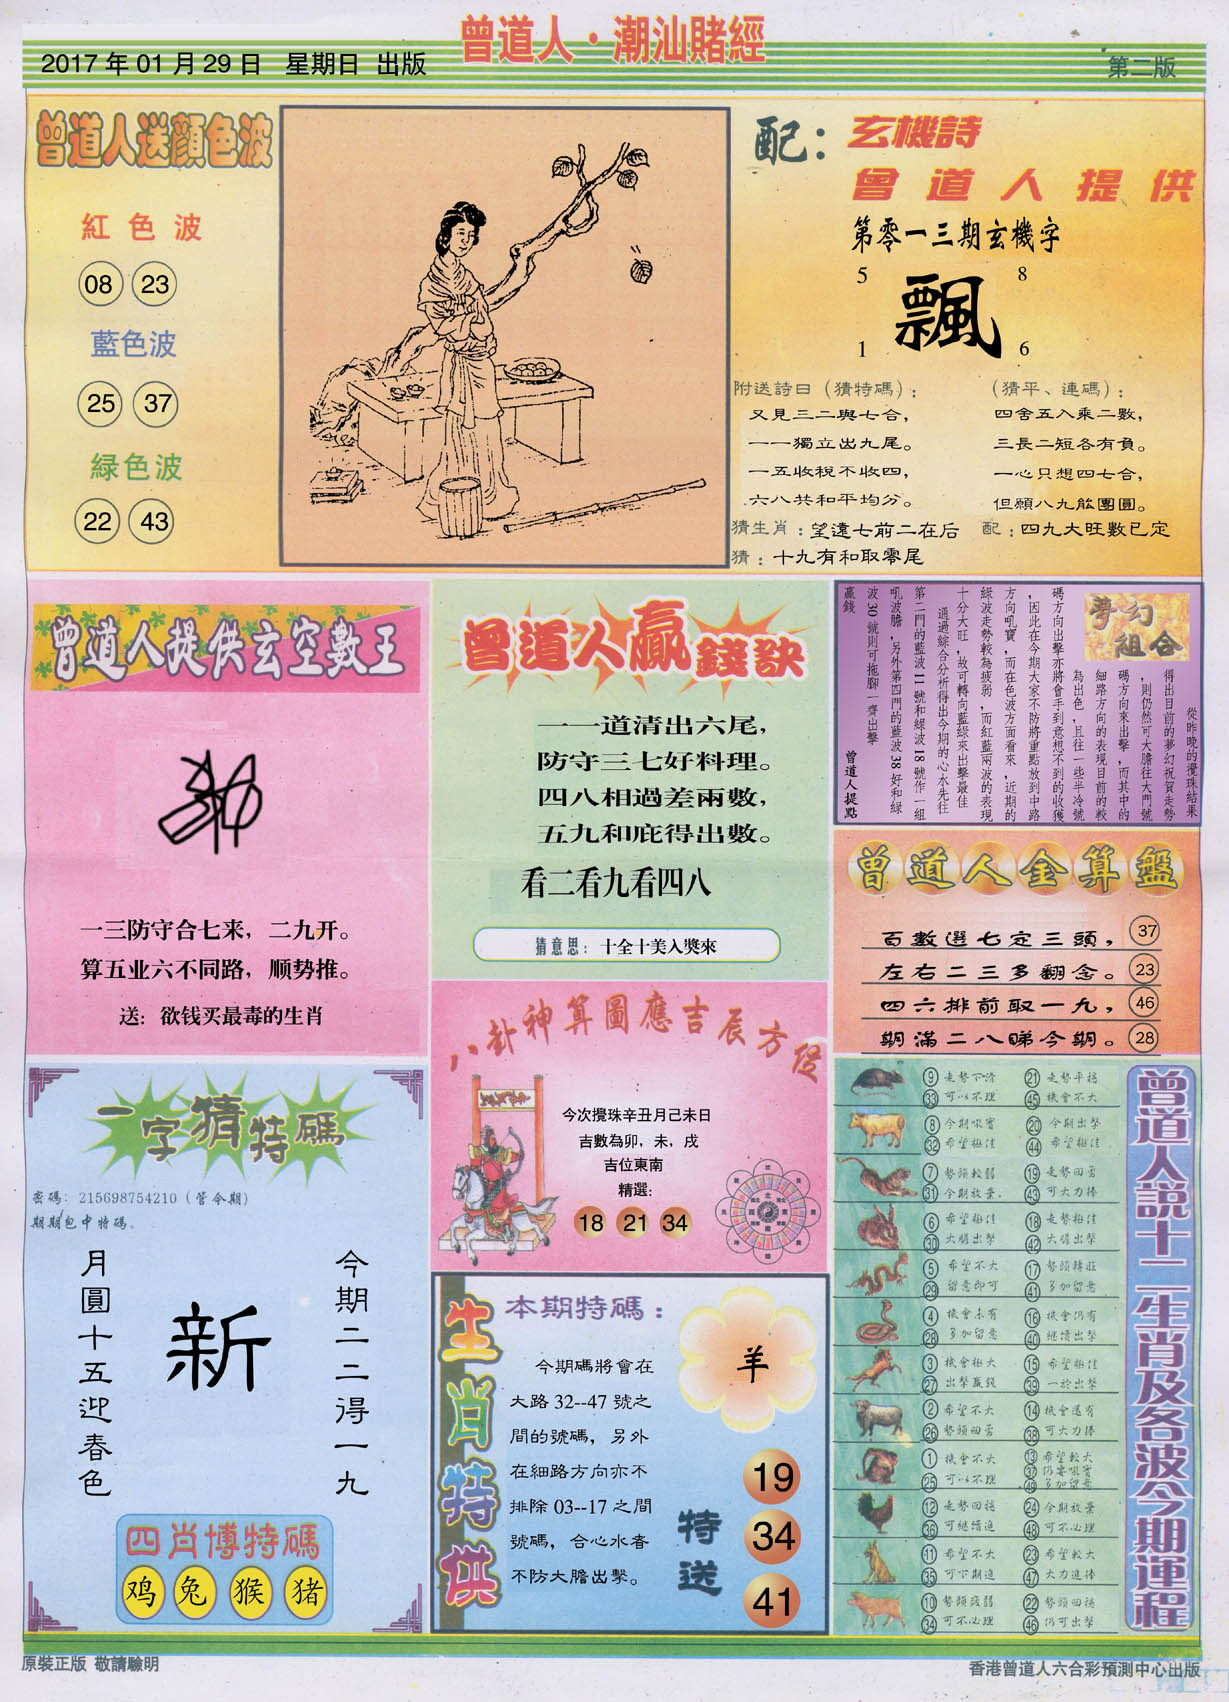 曾道人·潮汕賭經
2017 年 01 月 29 日 星期日 出版
第二版
曾道人送顏色波
紅色波
08 23
藍色波
25 37
緑色波
22 43
配：玄機詩
曾道人提供
第零一三期玄機字
5 8
飄
1 6
附送詩曰（猜特碼）：
又見三二與七合，
一一獨立出九尾。
一五收稅不收四，
六八共和平均分。
（猜平、連碼）：
四舍五入乘二數，
三長二短各有負。
一心只想四七合，
但願八九能團圓。
猜生肖：望遠七前二在后
配：四九大旺數已定
猜：十九有和取零尾
曾道人提供玄空數王
一三防守合七来，二九开。
算五业六不同路，顺势推。
送：欲钱买最毒的生肖
曾道人贏錢訣
一一道清出六尾，
防守三七好料理。
四八相過差兩數，
五九和庇得出數。
看二看九看四八
猜意思：十全十美入獎來
夢幻組合
從昨晚的攪珠結果
得出目前的夢幻祝賀走勢
，則仍然可大膽往大門號
碼方向來出擊，而其中的
細路方向的表現目前的較
為出色，且往一些半冷號
碼方向出擊亦將會手到意想不到的收獲
，因此在今期大家不防將重點放到中路
方向吼寶，而在色波方面看來，近期的
綠波走勢較為疲弱，而紅藍兩波的表現
十分大旺，故可轉向藍綠來出擊最佳
通過綜合分析得出今期的心水先往
第二門的藍波 11 號和綠波 18 號作一組
吼波膽，另外第四門的藍波 38 好和綠
波 30 號則可拖腳一齊出擊
贏錢
曾道人提點
曾道人金算盤
百數選七定三頭， 37
左右二三多翻念。 23
四六排前取一九， 46
期滿二八睇今期。 28
八卦神算圖應吉辰方位
今次攪珠辛丑月己未日
吉數為卯，未，戌
吉位東南
精選:
18 21 34
一字猜特碼
密碼：215698754210（管今期）
期期包中特碼。
今期二二得一九
新
月圓十五迎春色
四肖博特碼
鸡 兔 猴 猪
生肖特供
本期特碼：
羊
今期碼將會在
大路 32--47 號之
間的號碼，另外
在細路方向亦不
排除 03--17 之間
號碼，合心水者
不防大膽出擊。
特送
19
34
41
曾道人説十二生肖及各波今期運程
9 走勢下滑 21 走勢平穩
33 可以不理 45 機會不大
8 今期吸寶 20 今期出擊
32 希望極佳 44 希望極佳
7 勢頭較弱 19 走勢回勇
31 今期放棄 43 可大力捧
6 希望極佳 18 走勢極佳
30 大膽出擊 42 大膽出擊
5 希望不大 17 勢頭轉旺
29 留意即可 41 多加留意
4 機會未有 16 機會仍有
28 多加留意 40 繼續出擊
3 機會極大 15 希望極佳
27 出擊贏錢 39 一於出擊
2 希望不大 14 機會還有
26 勢頭回勇 38 可大力捧
1 機會不大 13 希望較大
25 可以不理 37 仍要吸寶
49 多加留意
12 走勢回穩 24 今期放棄
36 可繼續追 48 可不必理
11 希望不大 23 希望較大
35 可下期追 47 大力追捧
10 勢頭疲弱 22 勢頭回穩
34 可不必理 46 仍可出擊
原裝正版 敬請驗明
香港曾道人六合彩預測中心出版